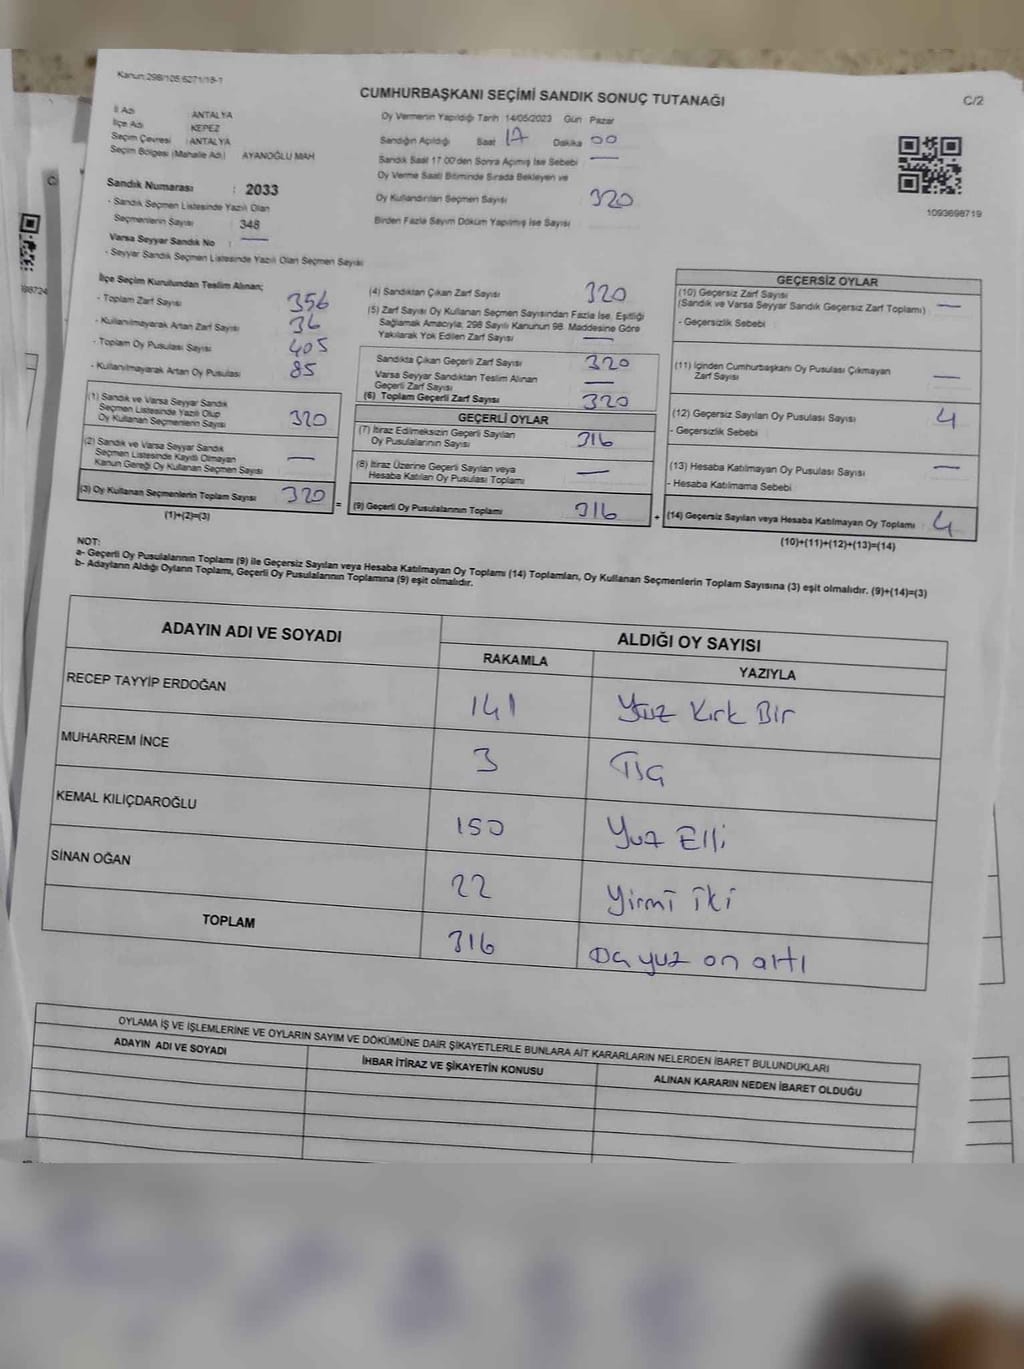 Kanun:298/105,6271/18-1
CUMHURBAŞKANI SEÇİMİ SANDIK SONUÇ TUTANAĞI
C/2
İl Adı ANTALYA
İlçe Adı KEPEZ
Seçim Çevresi : ANTALYA
Seçim Bölgesi (Mahalle Adı) AYANOĞLU MAH
Oy Vermenin Yapıldığı Tarih 14/05/2023 Gün Pazar
Sandığın Açıldığı Saat 17 Dakika 00
Sandık Saat 17:00'den Sonra Açılmış İse Sebebi —
Oy Verme Saati Bitiminde Sırada Bekleyen ve
Oy Kullandırılan Seçmen Sayısı 320
Birden Fazla Sayım Döküm Yapılmış İse Sayısı
1093698719
Sandık Numarası : 2033
- Sandık Seçmen Listesinde Yazılı Olan
Seçmenlerin Sayısı 348
Varsa Seyyar Sandık No : —
- Seyyar Sandık Seçmen Listesinde Yazılı Olan Seçmen Sayısı
İlçe Seçim Kurulundan Teslim Alınan;
- Toplam Zarf Sayısı 356
- Kullanılmayarak Artan Zarf Sayısı 36
- Toplam Oy Pusulası Sayısı 405
- Kullanılmayarak Artan Oy Pusulası 85
(1) Sandık ve Varsa Seyyar Sandık
Seçmen Listesinde Yazılı Olup
Oy Kullanan Seçmenlerin Sayısı 320
(2) Sandık ve Varsa Seyyar Sandık
Seçmen Listesinde Kayıtlı Olmayan
Kanun Gereği Oy Kullanan Seçmen Sayısı —
(3) Oy Kullanan Seçmenlerin Toplam Sayısı 320 =
(1)+(2)=(3)
(4) Sandıktan Çıkan Zarf Sayısı 320
(5) Zarf Sayısı Oy Kullanan Seçmen Sayısından Fazla İse, Eşitliği
Sağlamak Amacıyla, 298 Sayılı Kanunun 98. Maddesine Göre
Yakılarak Yok Edilen Zarf Sayısı —
Sandıkta Çıkan Geçerli Zarf Sayısı 320
Varsa Seyyar Sandıktan Teslim Alınan
Geçerli Zarf Sayısı —
(6) Toplam Geçerli Zarf Sayısı 320
GEÇERLİ OYLAR
(7) İtiraz Edilmeksizin Geçerli Sayılan
Oy Pusulalarının Sayısı 316
(8) İtiraz Üzerine Geçerli Sayılan veya
Hesaba Katılan Oy Pusulası Toplamı —
(9) Geçerli Oy Pusulalarının Toplamı 316 +
GEÇERSİZ OYLAR
(10) Geçersiz Zarf Sayısı
(Sandık ve Varsa Seyyar Sandık Geçersiz Zarf Toplamı) —
- Geçersizlik Sebebi
(11) İçinden Cumhurbaşkanı Oy Pusulası Çıkmayan
Zarf Sayısı —
(12) Geçersiz Sayılan Oy Pusulası Sayısı 4
- Geçersizlik Sebebi
(13) Hesaba Katılmayan Oy Pusulası Sayısı —
- Hesaba Katılmama Sebebi
(14) Geçersiz Sayılan veya Hesaba Katılmayan Oy Toplamı 4
(10)+(11)+(12)+(13)=(14)
NOT:
a- Geçerli Oy Pusulalarının Toplamı (9) ile Geçersiz Sayılan veya Hesaba Katılmayan Oy Toplamı (14) Toplamları, Oy Kullanan Seçmenlerin Toplam Sayısına (3) eşit olmalıdır. (9)+(14)=(3)
b- Adayların Aldığı Oyların Toplamı, Geçerli Oy Pusulalarının Toplamına (9) eşit olmalıdır.
ADAYIN ADI VE SOYADI
ALDIĞI OY SAYISI
RAKAMLA YAZIYLA
RECEP TAYYİP ERDOĞAN 141 Yüz Kırk Bir
MUHARREM İNCE 3 Üç
KEMAL KILIÇDAROĞLU 150 Yuz Elli
SİNAN OĞAN 22 Yirmi iki
TOPLAM 316 Üç yuz on altı
OYLAMA İŞ VE İŞLEMLERİNE VE OYLARIN SAYIM VE DÖKÜMÜNE DAİR ŞİKAYETLERLE BUNLARA AİT KARARLARIN NELERDEN İBARET BULUNDUKLARI
ADAYIN ADI VE SOYADI İHBAR İTİRAZ VE ŞİKAYETİN KONUSU ALINAN KARARIN NEDEN İBARET OLDUĞU